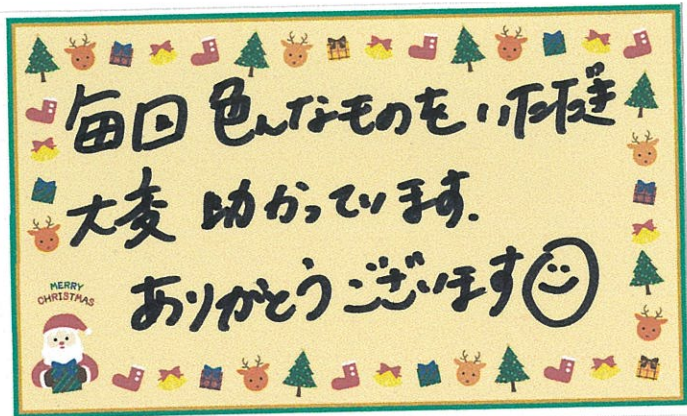 毎回 色んなものをいただき
大変 助かっています.
ありがとうございます☺
MERRY
CHRISTMAS